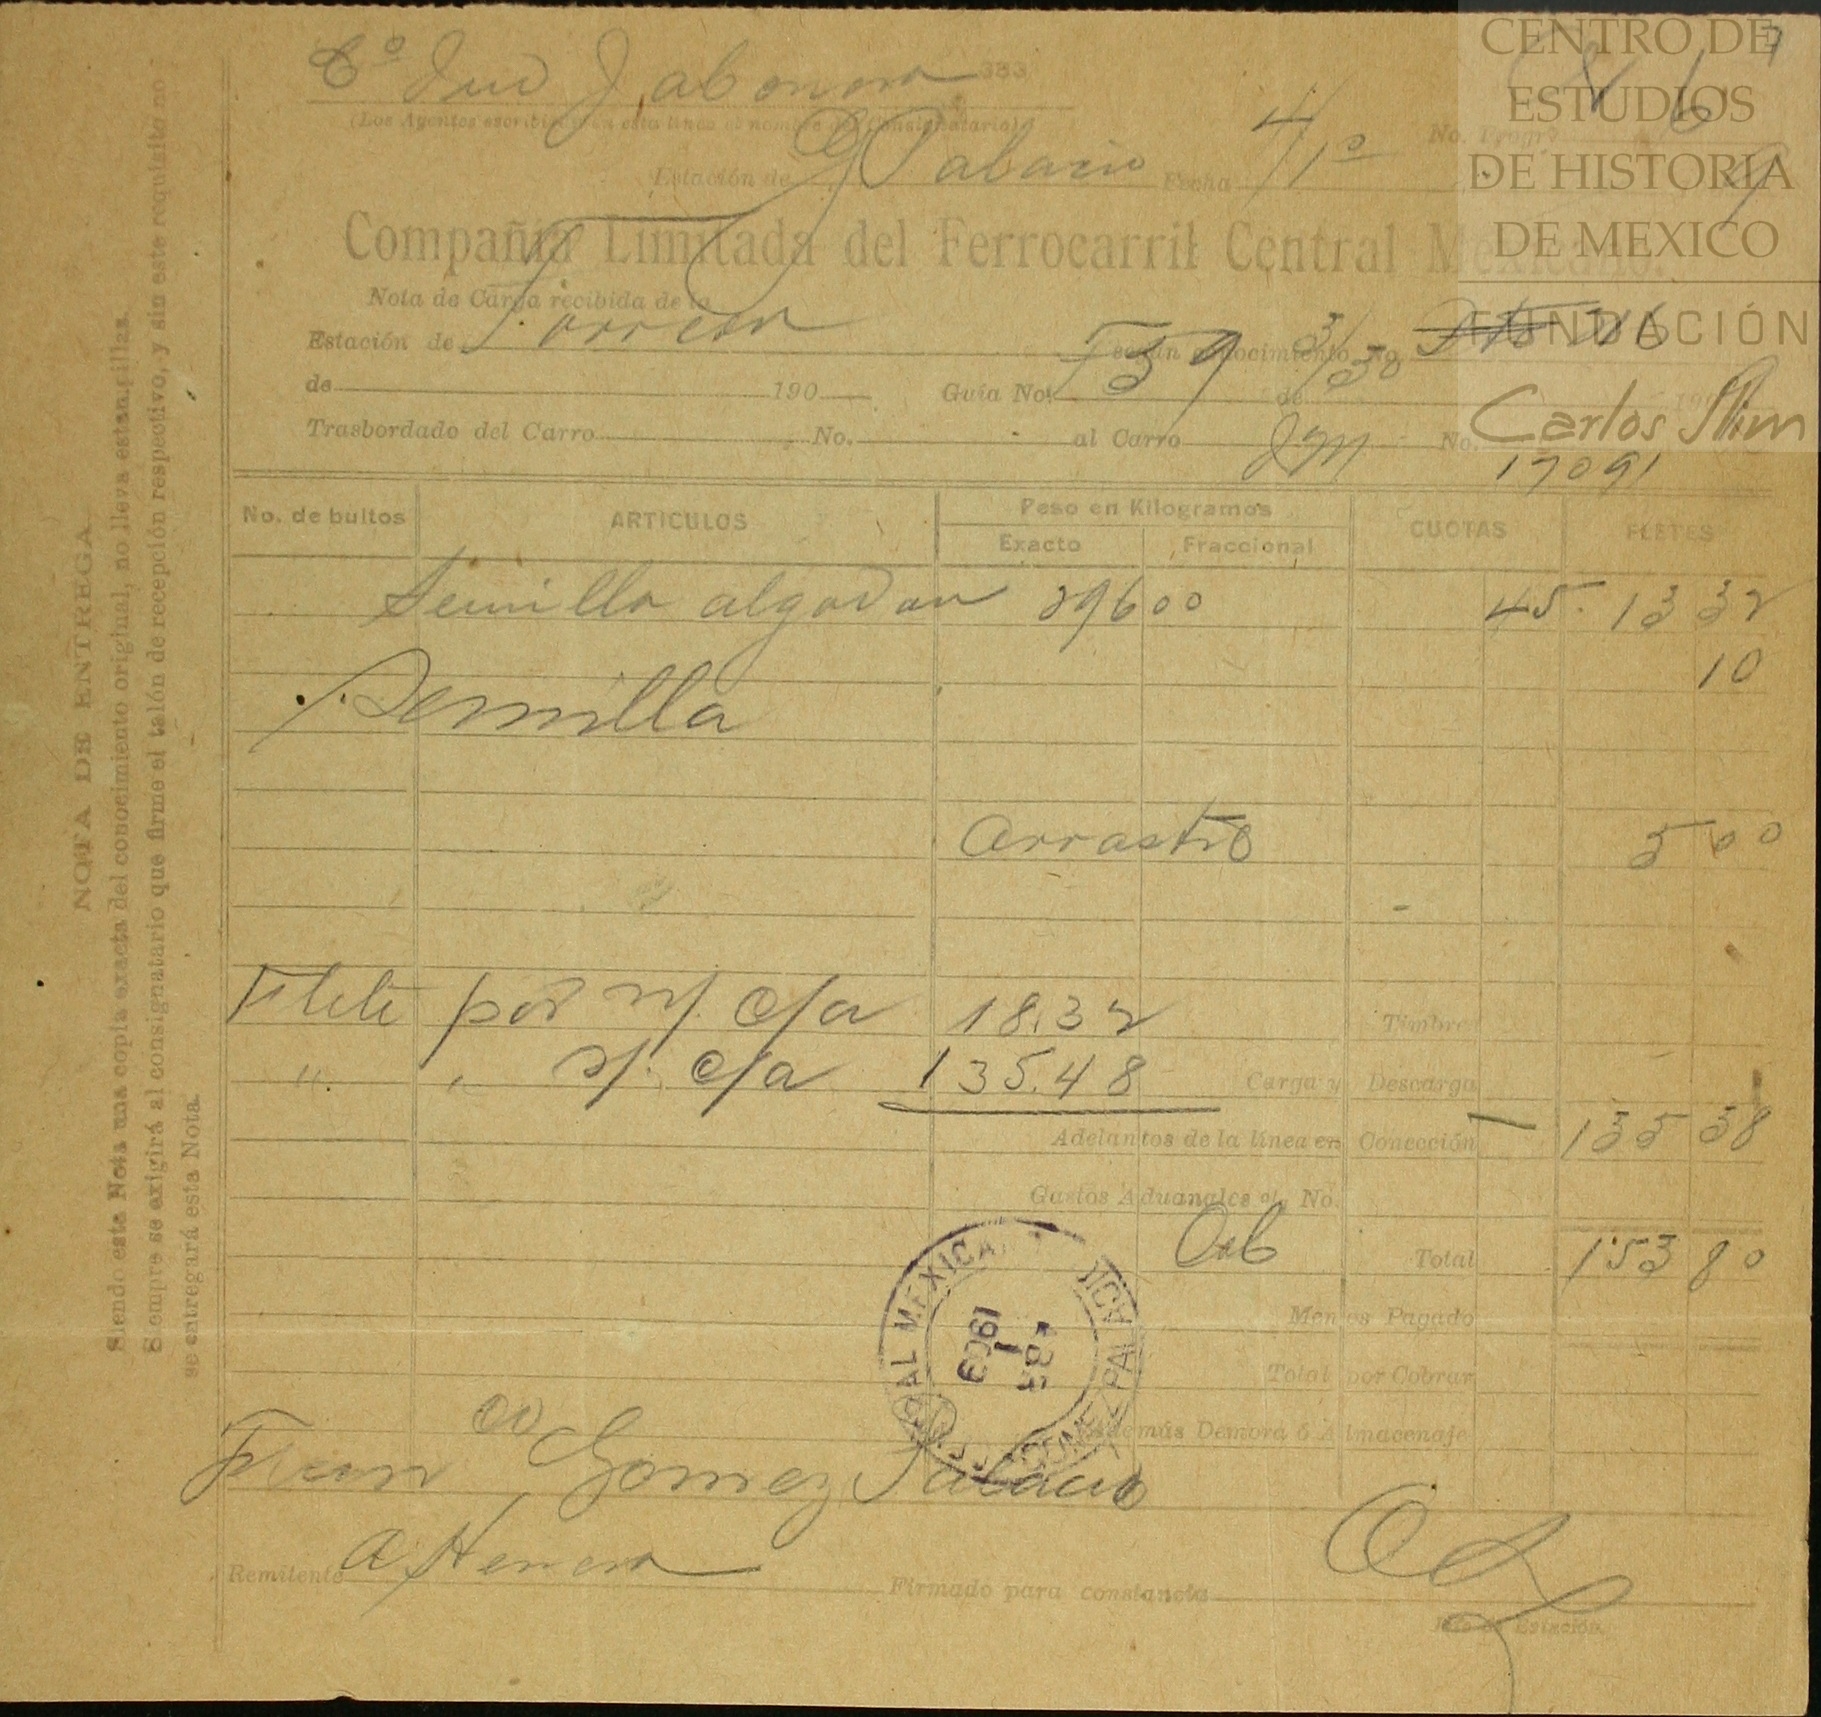 Cª Ind Jabonera 333
(Los Agentes escribirán en esta línea el nombre del Consignatario)
No. Progr.
Estación de G Palacio Fecha 4/1º 9
Compañía Limitada del Ferrocarril Central Mexicano.
Nota de Carga recibida de la
Estación de Torreon según conocimiento No.
de 190 Guía No. 59 de 3/30 190
Trasbordado del Carro No. al Carro No.
17091
No. de bultos ARTICULOS Peso en Kilogramos CUOTAS FLETES
Exacto Fraccional
Semilla algodon 29600 45. 133 32
10
Semilla
Arrastre 5 00
Flete por n/. c/a 18.32 Timbre
" " s/. c/a 135.48 Carga y Descarga
Adelantos de la línea en Conección 135 38
Gastos Aduanales o/. No.
Total 153 80
Menos Pagado
Total por Cobrar
Además Demora ó Almacenaje
CENTRAL MEXICANO
GOMEZ PALACIO
1909
Gomez Palacio
Remitente A Herrera Firmado para constancia
Jefe de Estación.
NOTA DE ENTREGA
Siendo esta Nota una copia exacta del conocimiento original, no lleva estampillas.
Siempre se exigirá al consignatario que firme el talón de recepción respectivo, y sin este requisito no
se entregará esta Nota.
CENTRO DE
ESTUDIOS
DE HISTORIA
DE MEXICO
FUNDACIÓN
Carlos Slim